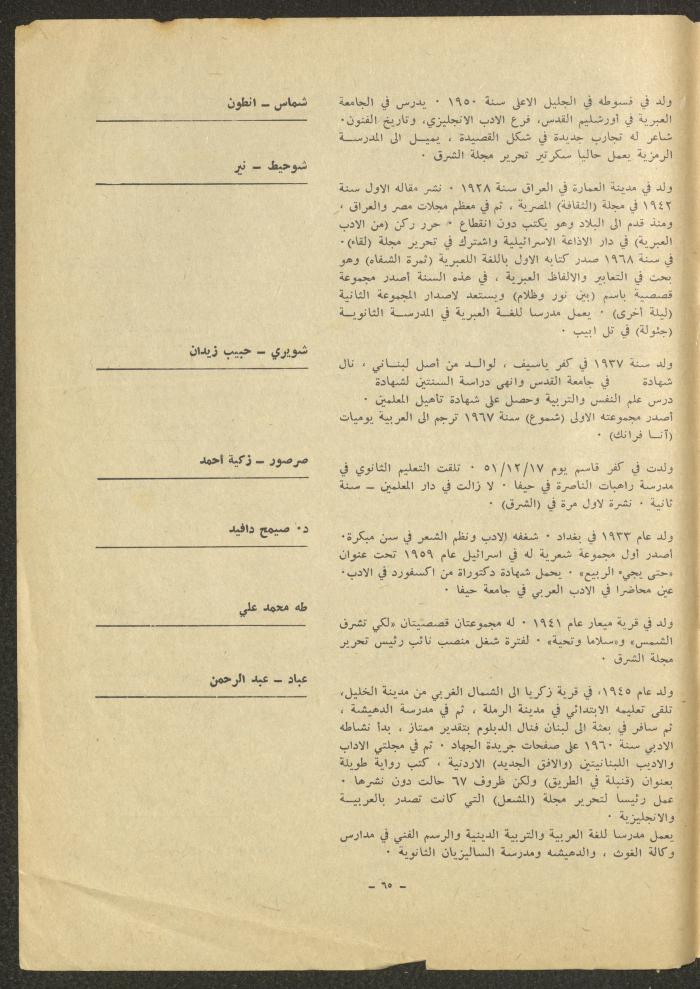 شماس ـ انطون
ولد في فسوطه في الجليل الاعلى سنة ١٩٥٠ ٠ يدرس في الجامعة
العبرية في أورشليم القدس، فرع الادب الانجليزي، وتاريخ الفنون٠
شاعر له تجارب جديدة في شكل القصيدة ، يميــل الى المدرســة
الرمزية يعمل حاليا سكرتير تحرير مجلة الشرق ٠
شوحيط ـ نير
ولد في مدينة العمارة في العراق سنة ١٩٢٨ ٠ نشر مقاله الاول سنة
١٩٤٢ في مجلة (الثقافة) المصرية ، ثم في معظم مجلات مصر والعراق ،
ومنذ قدم الى البلاد وهو يكتب دون انقطاع ٠ حرر ركن (من الادب
العبرية) في دار الاذاعة الاسرائيلية واشترك في تحرير مجلة (لقاء)٠
في سنة ١٩٦٨ صدر كتابه الاول باللغة اللعبرية (ثمرة الشفاه) وهو
بحث في التعابير والالفاظ العبرية ، في هذه السنة أصدر مجموعة
قصصية باسم (بين نور وظلام) ويستعد لاصدار المجموعة الثانية
(ليلة أخرى) ٠ يعمل مدرسا للغــة العبرية في المدرســة الثانويــة
(جئولة) في تل ابيب ٠
شويري ـ حبيب زيدان
ولد سنة ١٩٣٧ في كفر ياسيف ، لوالــد من أصل لبنــاني ، نال
شهادة في جامعة القدس وانهى دراسة السنتين لشهادة
درس علم النفس والتربية وحصل على شهادة تأهيل المعلمين ٠
أصدر مجموعته الاولى (شموع) سنة ١٩٦٧ ترجم الى العربية يوميات
(آنــا فرانك) ٠
صرصور ـ زكية أحمد
ولدت في كفر قاسم يوم ٥١/١٢/١٧ ٠ تلقت التعليم الثانوي في
مدرسة راهبات الناصرة في حيفا ٠ لا زالت في دار المعلمين ــ سنة
ثانية ٠ نشرة لاول مرة في (الشرق) ٠
د٠ صيمح دافيد
ولد عام ١٩٣٣ في بغداد ٠ شغفه الادب ونظم الشعر في سن مبكرة٠
أصدر أول مجموعة شعرية له في اسرائيل عام ١٩٥٩ تحت عنوان
«حتى يجيء الربيع» ٠ يحمل شهادة دكتوراة من اكسفورد في الادب٠
عين محاضرا في الادب العربي في جامعة حيفا ٠
طه محمد علي
ولد في قرية ميعار عام ١٩٤١ ٠ له مجموعتان قصصيتان «لكي تشرق
الشمس» و«سلاما وتحية» ٠ لفترة شغل منصب نائب رئيس تحرير
مجلة الشرق ٠
عباد ـ عبد الرحمن
ولد عام ١٩٤٥، في قرية زكريا الى الشمال الغربي من مدينة الخليل،
تلقى تعليمه الابتدائي في مدينة الرملة ، ثم في مدرسة الدهيشة ،
ثم سافر في بعثة الى لبنان فنال الدبلوم بتقدير ممتاز ، بدأ نشاطه
الادبي سنة ١٩٦٠ على صفحات جريدة الجهاد ٠ ثم في مجلتي الاداب
والاديب اللبنانيتين (والافق الجديد) الاردنية ، كتب رواية طويلة
بعنوان (قنبلة في الطريق) ولكن ظروف ٦٧ حالت دون نشرها ٠
عمل رئيسا لتحرير مجلة (المشعل) التي كانت تصدر بالعربيــة
والانجليزية ٠
يعمل مدرسا للغة العربية والتربية الدينية والرسم الفني في مدارس
وكالة الغوث ، والدهيشه ومدرسة الساليزيان الثانوية ٠
ـ ٦٥ ـ